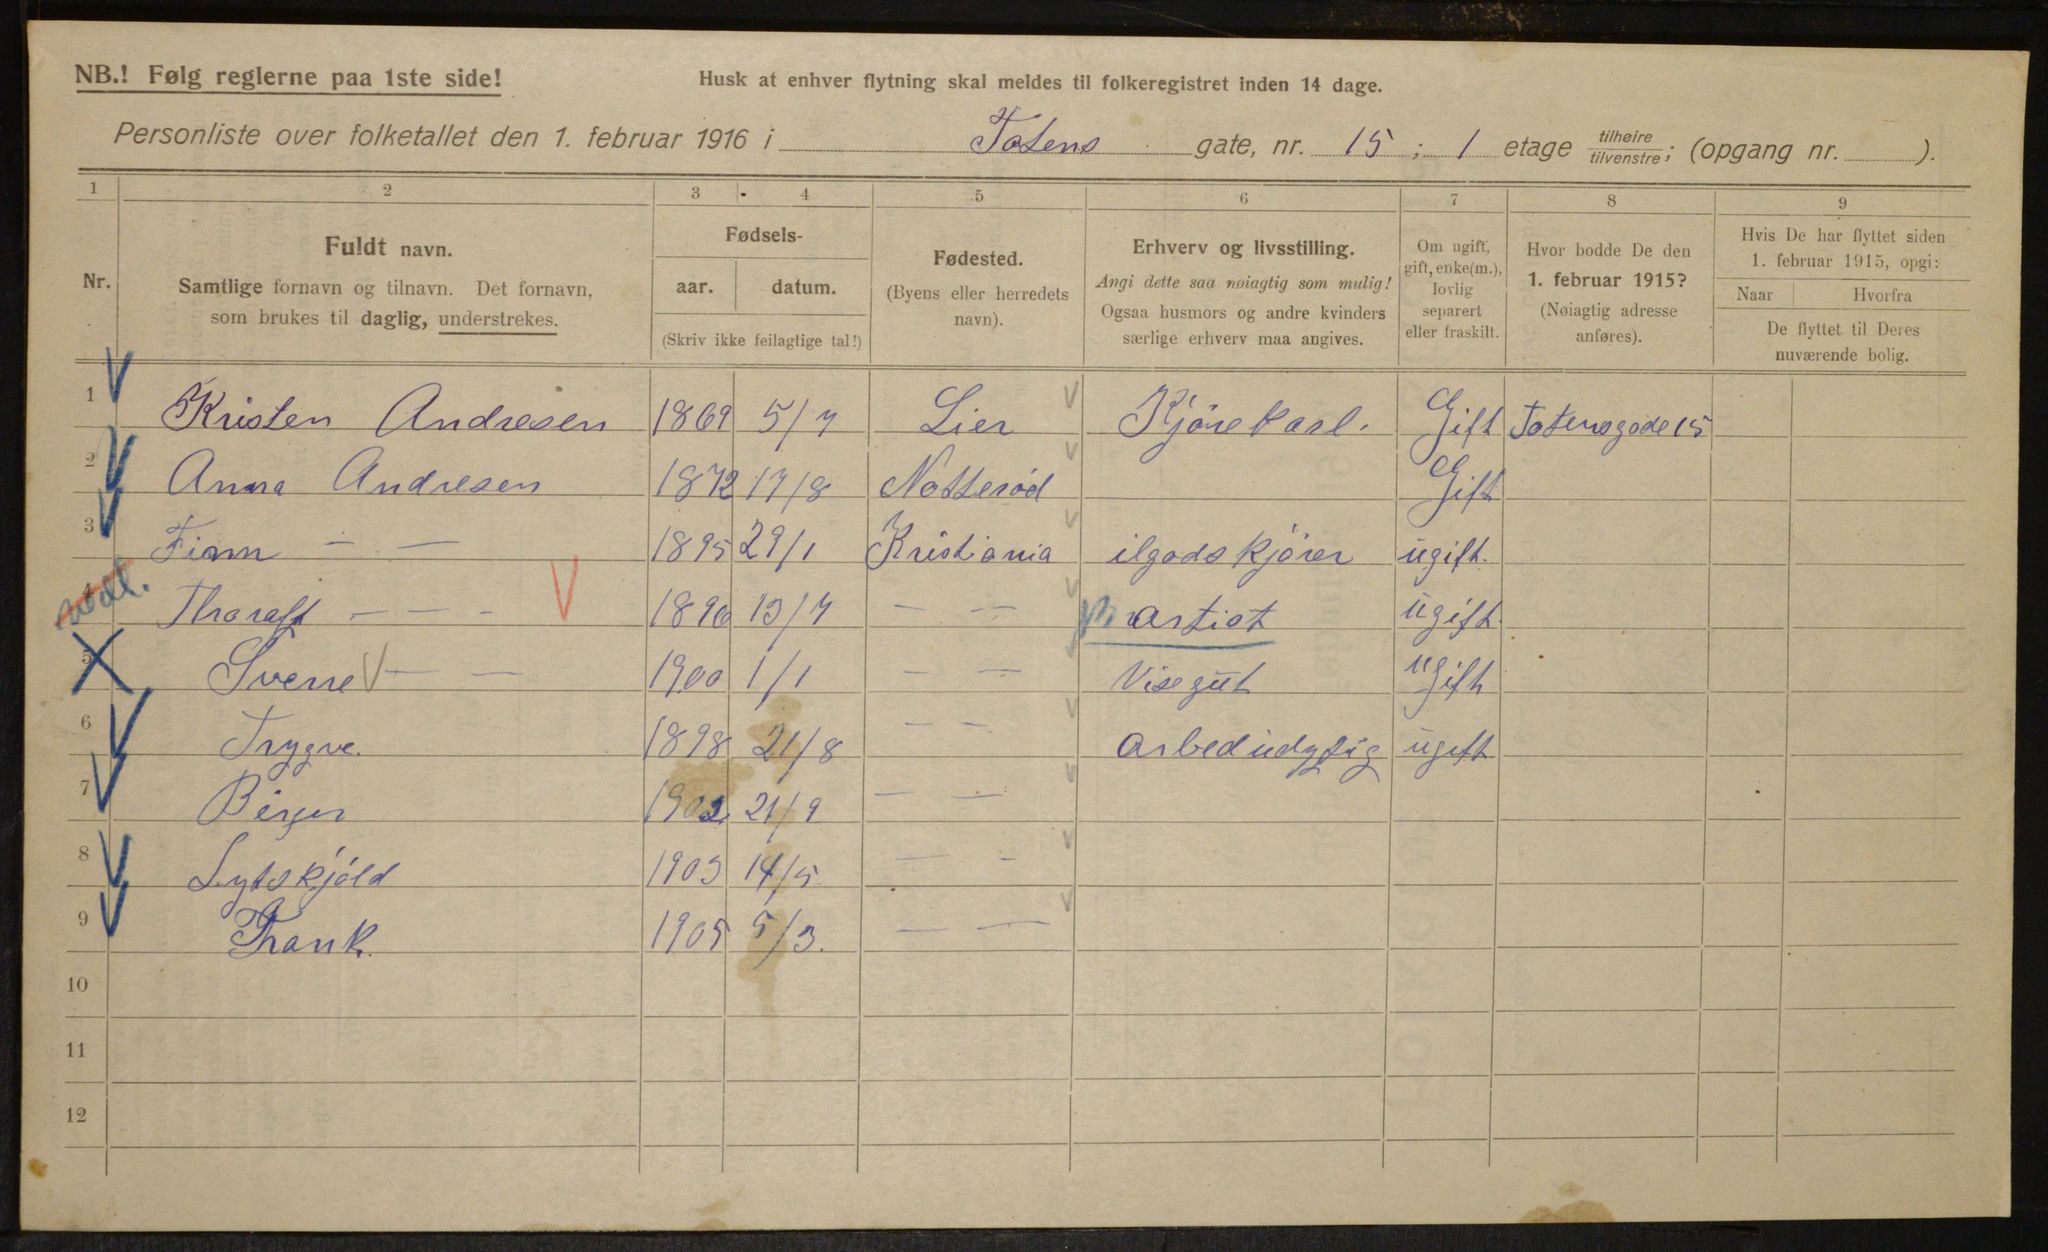 NB.! Følg reglerne paa 1ste side!
Husk at enhver flytning skal meldes til folkeregistret inden 14 dage.
Personliste over folketallet den 1. februar 1916 i Totens gate, nr. 15 ; 1 etage tilhøire/tilvenstre; (opgang nr. ).
1 2 3 4 5 6 7 8 9
Nr.
Fuldt navn.
Samtlige fornavn og tilnavn. Det fornavn,
som brukes til daglig, understrekes.
Fødsels-
aar. datum.
(Skriv ikke feilagtige tal!)
Fødested.
(Byens eller herredets
navn).
Erhverv og livsstilling.
Angi dette saa nøiagtig som mulig!
Ogsaa husmors og andre kvinders
særlige erhverv maa angives.
Om ugift,
gift, enke(m.),
lovlig
separert
eller fraskilt.
Hvor bodde De den
1. februar 1915?
(Nøiagtig adresse
anføres).
Hvis De har flyttet siden
1. februar 1915, opgi:
Naar Hvorfra
De flyttet til Deres
nuværende bolig.
1 Kristen Andresen 1869 5/7 Lier Kjörekarl. Gift Totensgade 15
2 Anna Andresen 1872 17/8 Notterød Gift
3 Finn — — 1895 29/1 Kristiania ilgodskjörer ugift.
4 Thoralf — — - 13/7 — — artist ugift.
5 Sverre — — 1900 1/1 — — Visegut ugift
6 Trygve. 1898 21/8 — — arbedudygtig ugift
7 Birger 1902 21/9 — —
8 Lytskjöld 1903 14/5. — -
9 Frank. 1905 5/3. — —
10
11
12